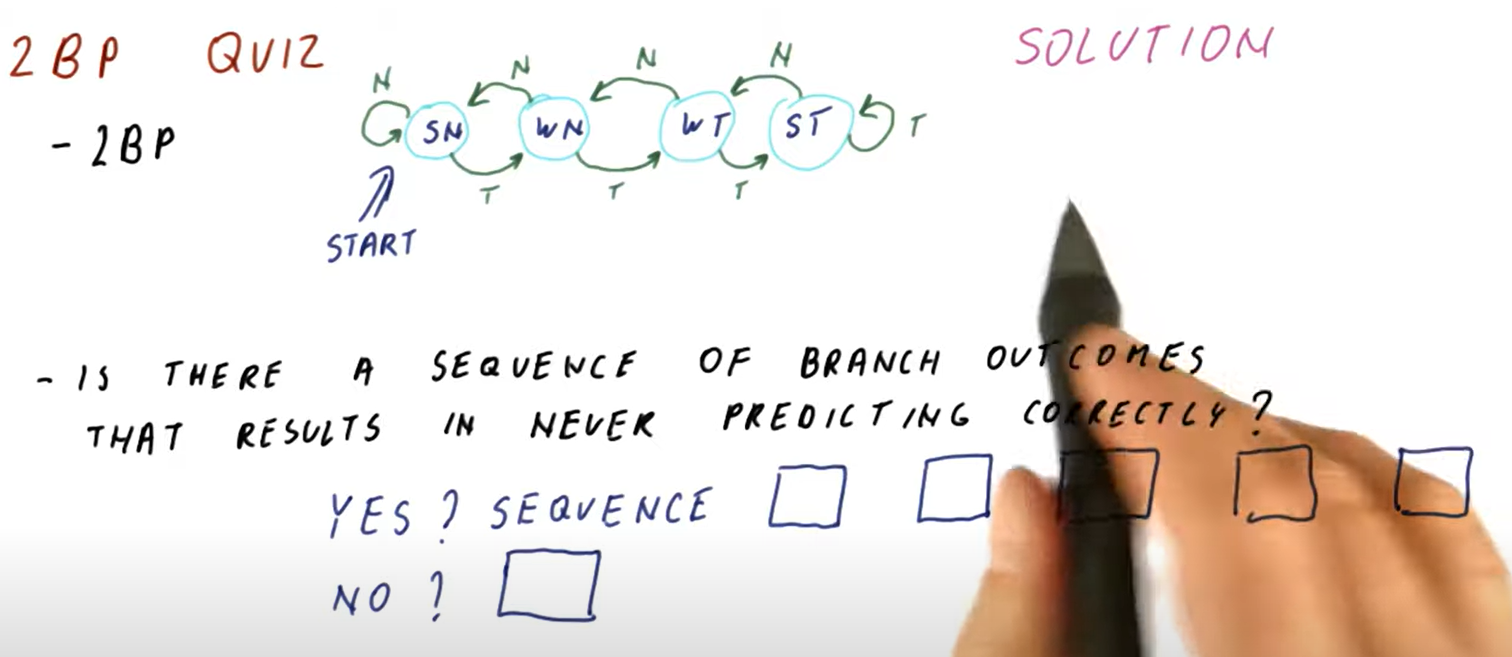 2BP QUIZ
SOLUTION
N N N N
- 2BP
SN WN WT ST T
T T T
START
- IS THERE A SEQUENCE OF BRANCH OUTCOMES
THAT RESULTS IN NEVER PREDICTING CORRECTLY?
YES? SEQUENCE
NO?